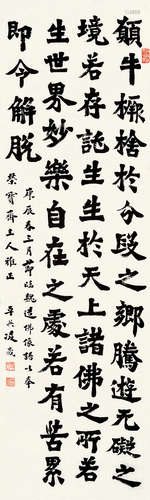 願牛橛捨於分段之鄉騰遊无礙之
境若存託生生於天上諸佛之所若
生世界妙樂自在之處若有苦累
即令解脫
庚辰春三月節臨魏造佛像
榮寶齋主人雅正